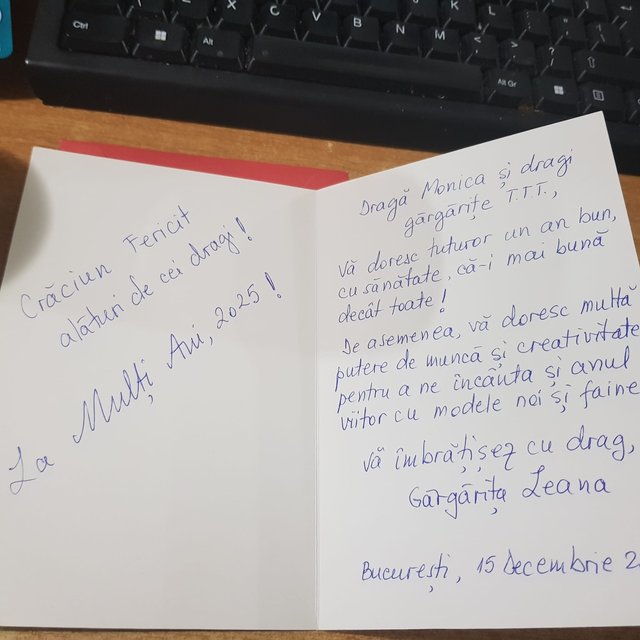 Ctrl
Alt
X
C
V
B
N
M
Alt Gr
Crăciun Fericit
alături de cei dragi!
La Mulți Ani, 2025!
Dragă Monica și dragi
gărgărițe T.T.T.,
Vă doresc tuturor un an bun,
cu sănătate, că-i mai bună
decât toate!
De asemenea, vă doresc multă
putere de muncă și creativitate
pentru a ne încânta și anul
viitor cu modele noi și faine
Vă îmbrățișez cu drag,
Gărgărița Leana
București, 15 Decembrie 2